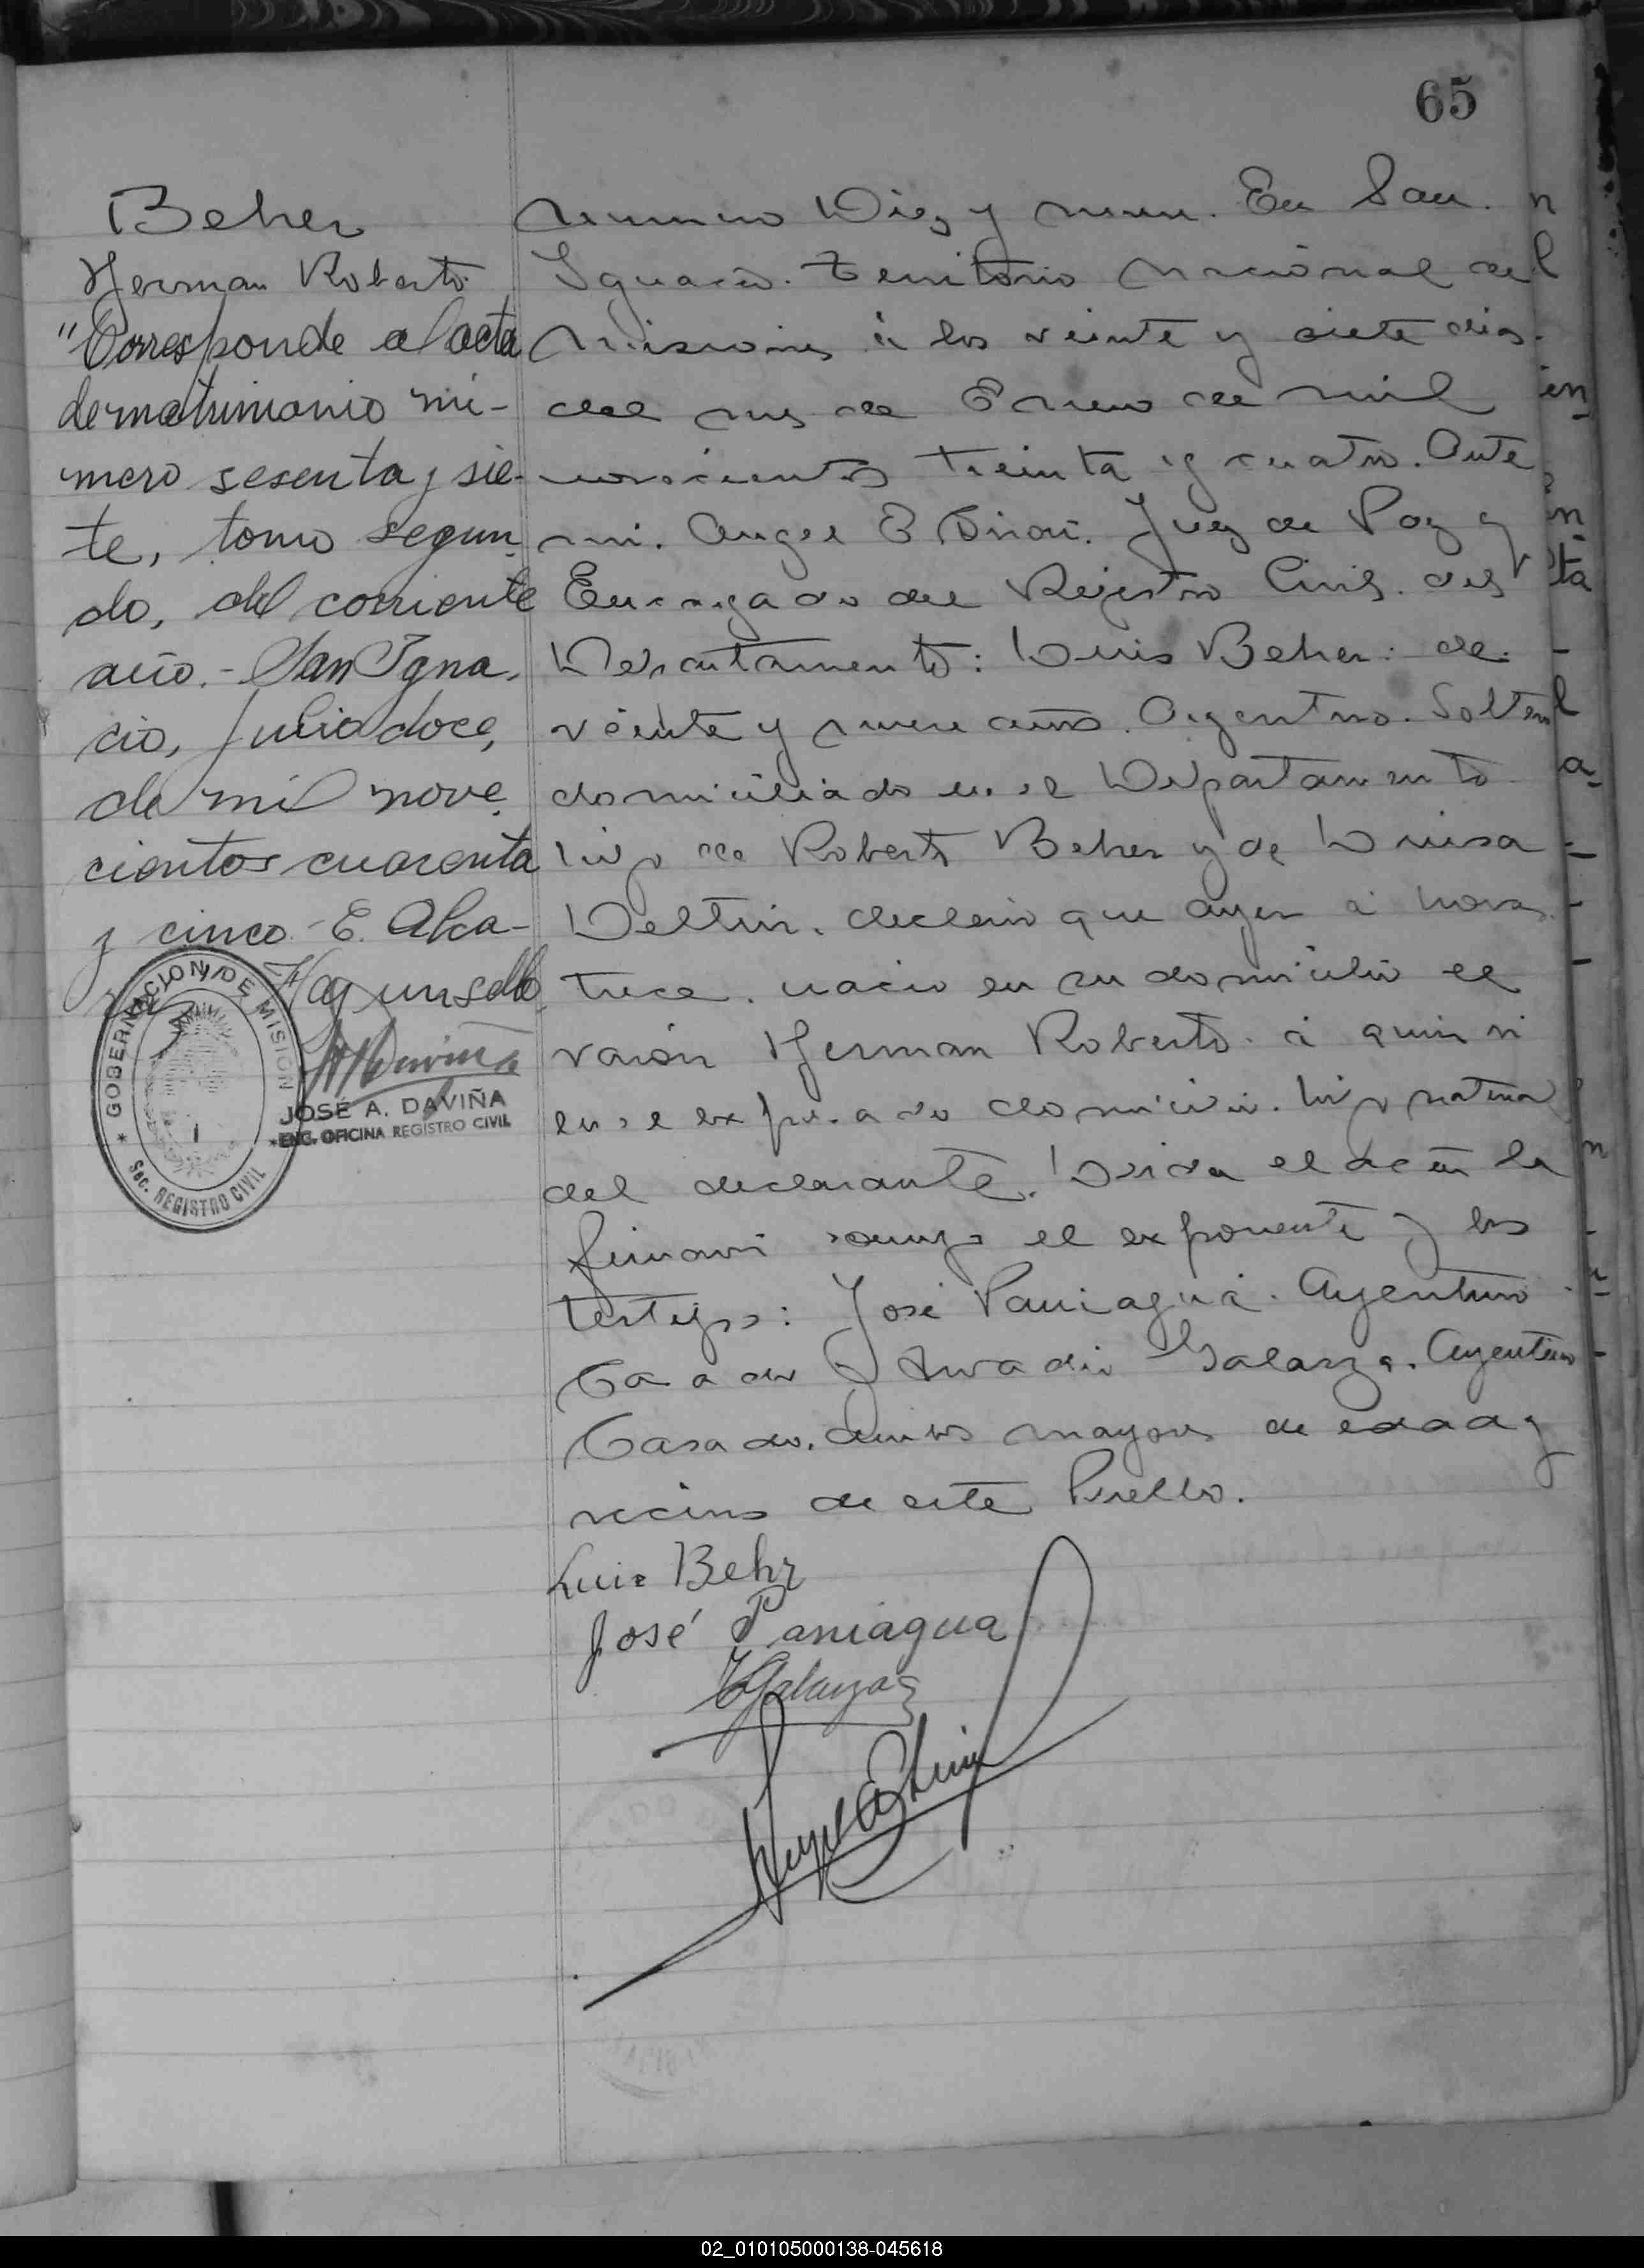 65
Beher
Herman Roberto
"Corresponde al acta
de matrimonio nú-
mero sesenta y sie-
te, tomo segun-
do, del corriente
año.- San Igna-
cio, Julio doce,
de mil nove-
cientos cuarenta
y cinco - E. Alca-
Hay un sello
GOBERNACION DE MISION
Sec. REGISTRO CIVIL
JOSÉ A. DAVIÑA
ENC. OFICINA REGISTRO CIVIL
Numero Diez y nueve. En San
Ignacio. Territorio Nacional de
Misiones á los veinte y siete dias
del mes de Enero de mil
novecientos treinta y cuatro. Ante
mi. Angel E. Juez de Paz y
Encargado del Rejistro Civil. del
Departamento: Luis Beher: de
veinte y nueve años. Argentino. Soltero
domiciliado en el Departamento
hijo de Roberto Beher y de Luisa
declaró que ayer á horas
trece. nació en su domicilio el
varón Herman Roberto. á quien vi
en el expresado domicilio. hijo natural
del declarante. Leida el acta la
firmaron conmigo el exponente y los
testigos: José Paniagua. Argentino
Casado y Galarza. Argentino
Casado. ambos mayores de edad y
vecinos de este Pueblo.
Luis Behr
José Paniagua
Galarza
Angel E
02_010105000138-045618